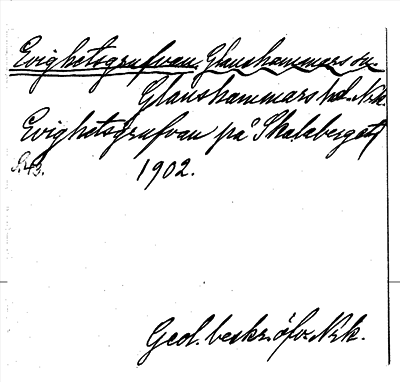 Evighetsgrufvan, Glanshammars sn.
Glanshammars hd. Nrk.
Evighetsgrufvan på Skalaberget
S. 43. 1902.
Geol. beskr. öfv. Nrk.